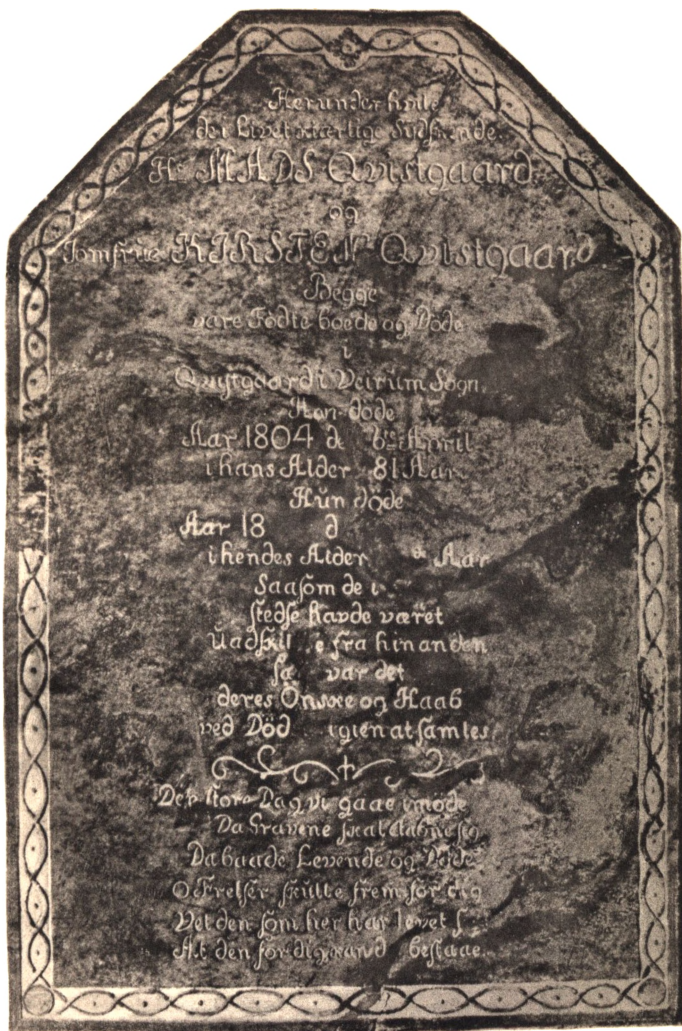 Herunder hvile
de i Livet kiærlige Sydskende
Hr MADS Qvistgaard
og
Jomfrue KIRSTEN Qvistgaard
Begge
vare Födte boede og Döde
i
Qvistgaard i Veirum Sogn
Han döde
Aar 1804 d 6te April
i hans Alder 81 Aar
Hun döde
Aar 18 d
i hendes Alder Aar
Saasom de i
stedse havde været
Uadskil e fra hinanden
saa var det
deres Onske og Haab
ved Död igien at samles
Den store Dag vi gaae imöde
Da Gravene skal aabne sig
Da baade Levende og Döde
O Frelser skulle frem for dig
Vel den som her har levet
At den for dig kand bestaae